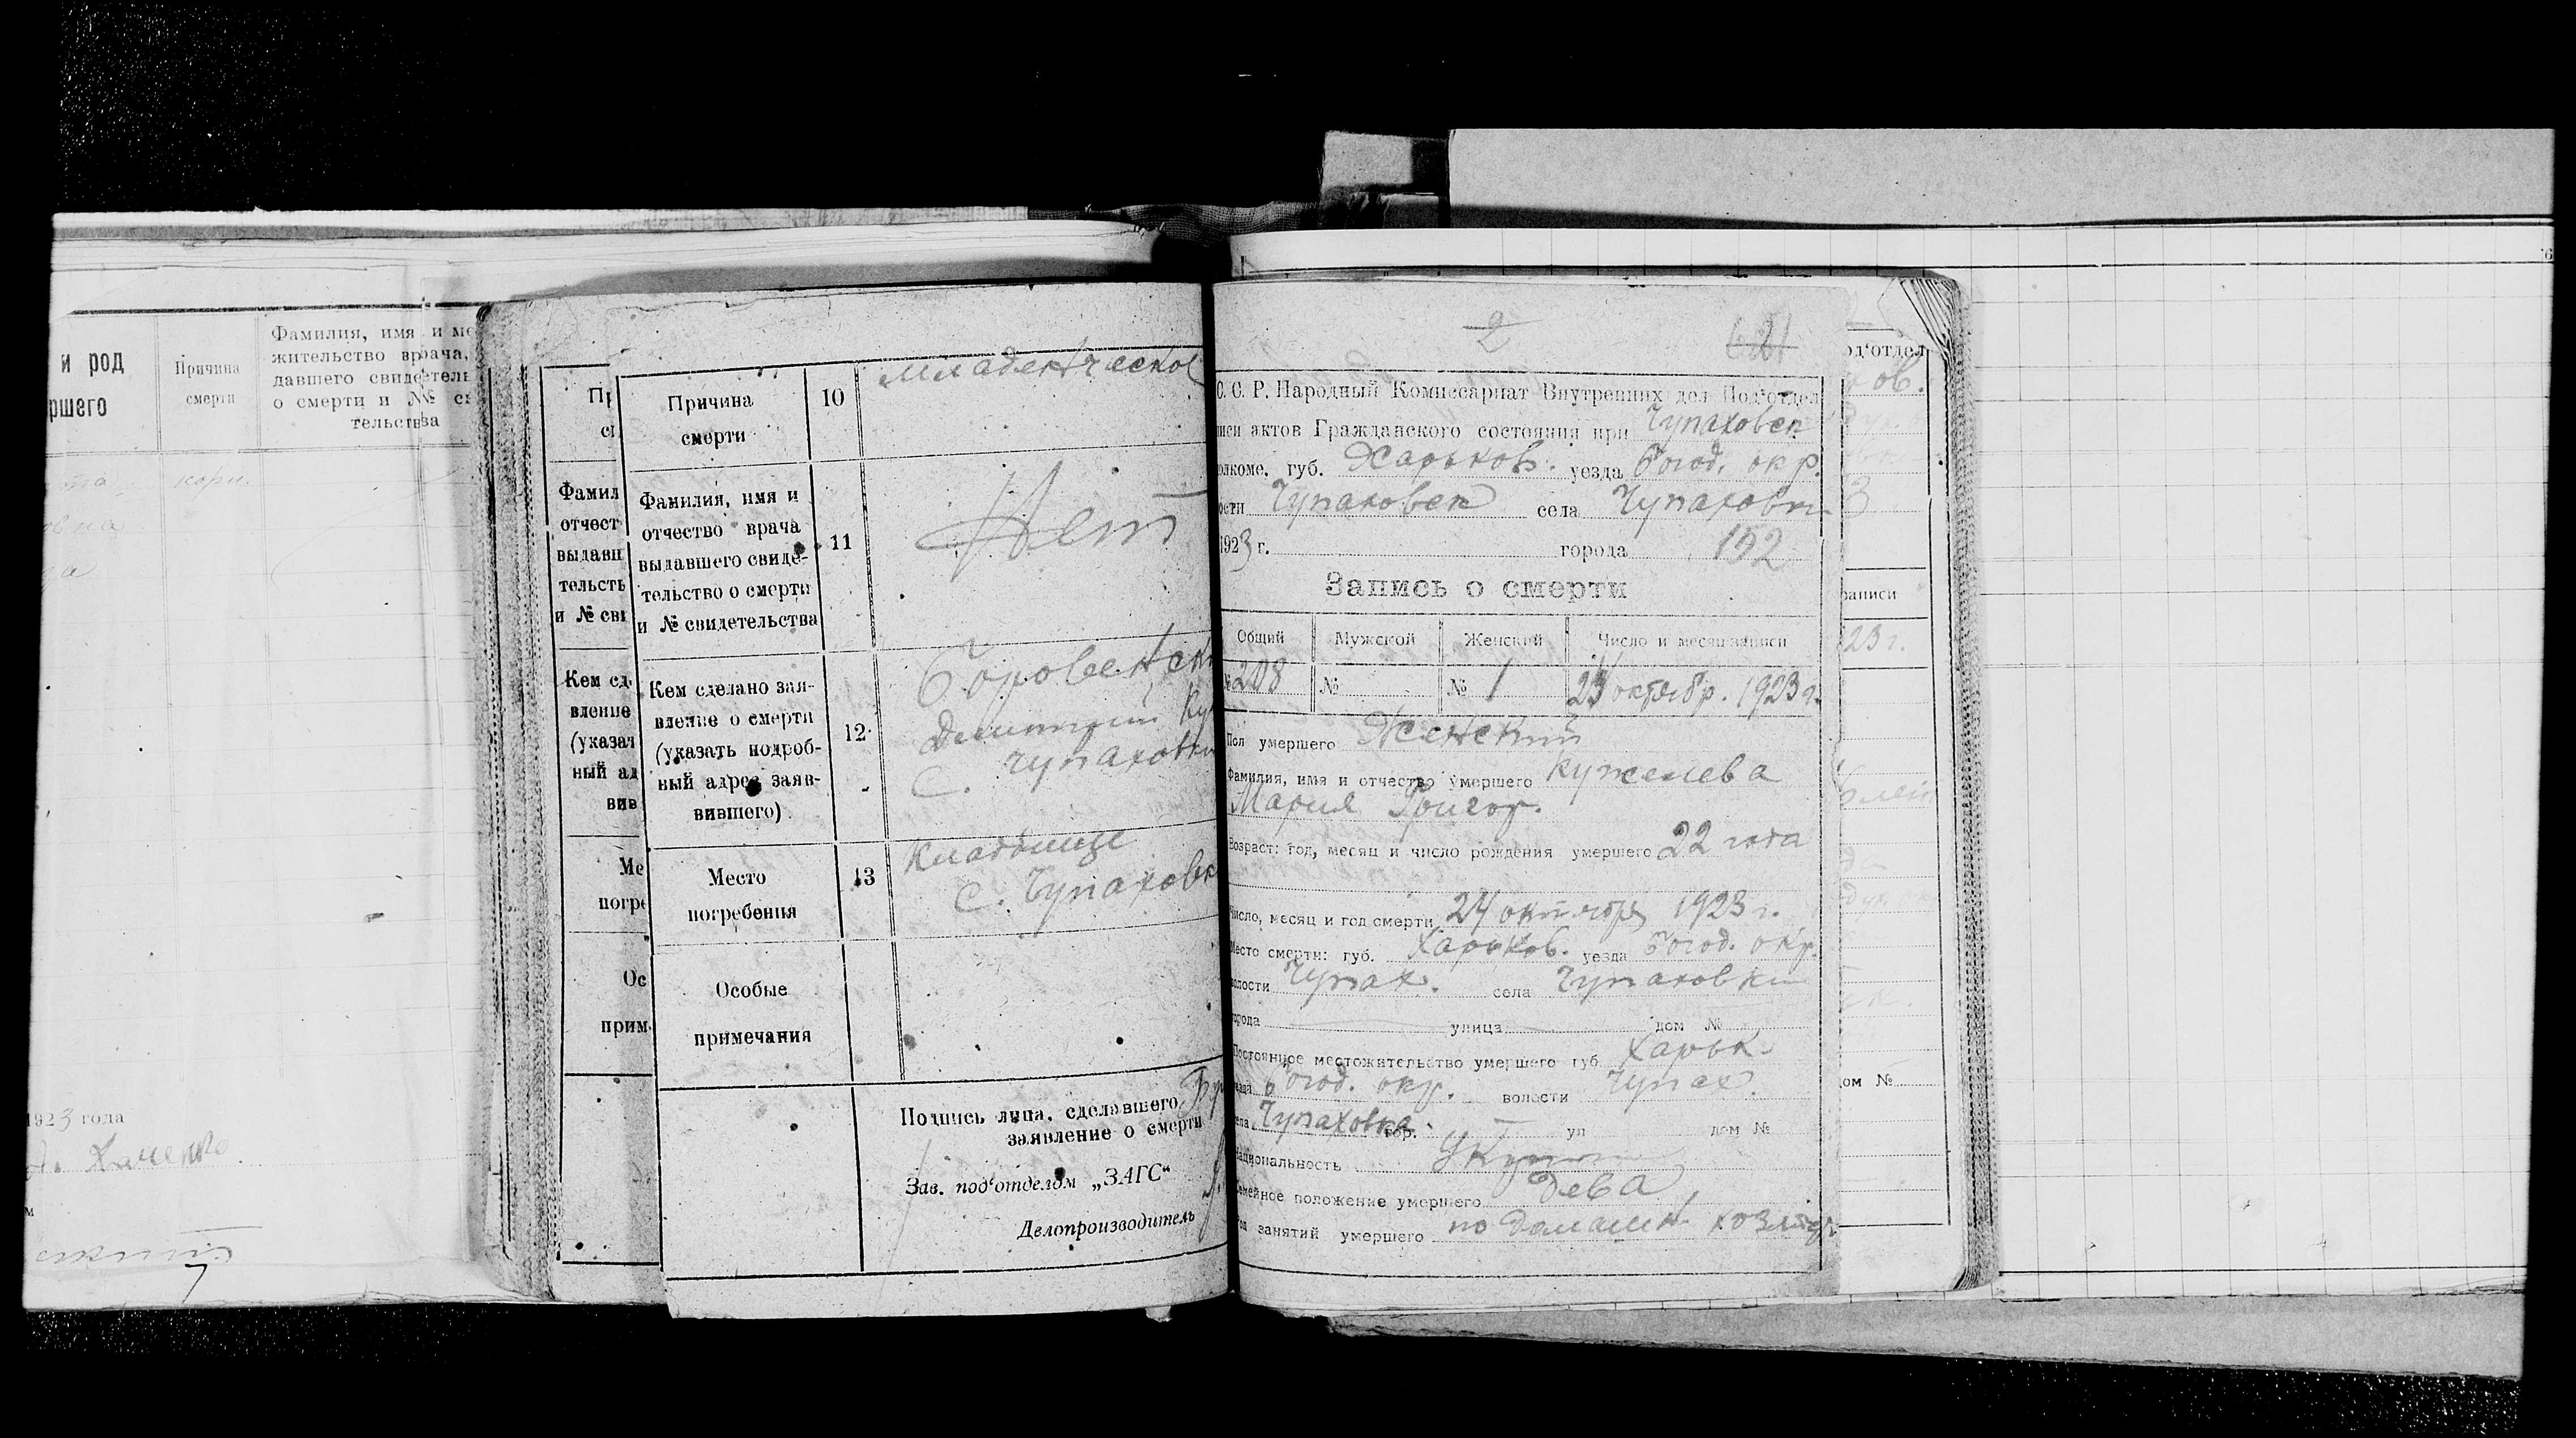 и род
ршего
Причина
смерти
Фамилия, имя и ме
жительство врача,
давшего свидетель
о смерти и № св
тельства
кори.
овна
а
1923 года
Пр
см
Фамил
отчест
выдавш
тельств
и № сви
Кем сд
вление
(указат
ный ад
вив
Ме
погре
Ос
прим
Причина
смерти
10
младенческое
Фамилия, имя и
отчество врача
выдавшего свиде-
тельство о смерти
и № свидетельства
11
Нет
Кем сделано зая-
вление о смерти
(указать подроб-
ный адрес заяв-
вившего)
12
Боровенск
Дмитрий Ку
С. Чупаховки
Место
погребения
13
Кладбище
С. Чупаховк
Особые
примечания
Подпись лица, сделавшего
заявление о смерти
Зав. под‘отделом „ЗАГС“
Делопроизводитель
2
С. С. Р. Народный Комиссариат Внутренних дел Под‘отдел
писи актов Гражданского состояния при Чупаховск
олкоме, губ. Харьков. уезда Богод. окр.
ости Чупаховск села Чупаховки
1923 г. города 192
Запись о смерти
Общий Мужской Женский Число и месяц записи
№ 208 № № 1 24 октябр. 1923 г.
Пол умершего Женский
Фамилия, имя и отчество умершего Кужелева
Мария Григор.
Возраст: год, месяц и число рождения умершего 22 года
Число, месяц и год смерти 24 октября 1923 г.
Место смерти: губ. Харьков. уезда Богод. окр.
волости Чупах. села Чупаховки
города улица дом №
Постоянное местожительство умершего губ. Харьк.
уезда Богод. окр. волости Чупах.
села Чупаховка гор. ул дом №
Национальность
Семейное положение умершего Дева
Род занятий умершего по домашн. хозяйст.
од‘отдел
ов.
3
записи
23 г.
ом №